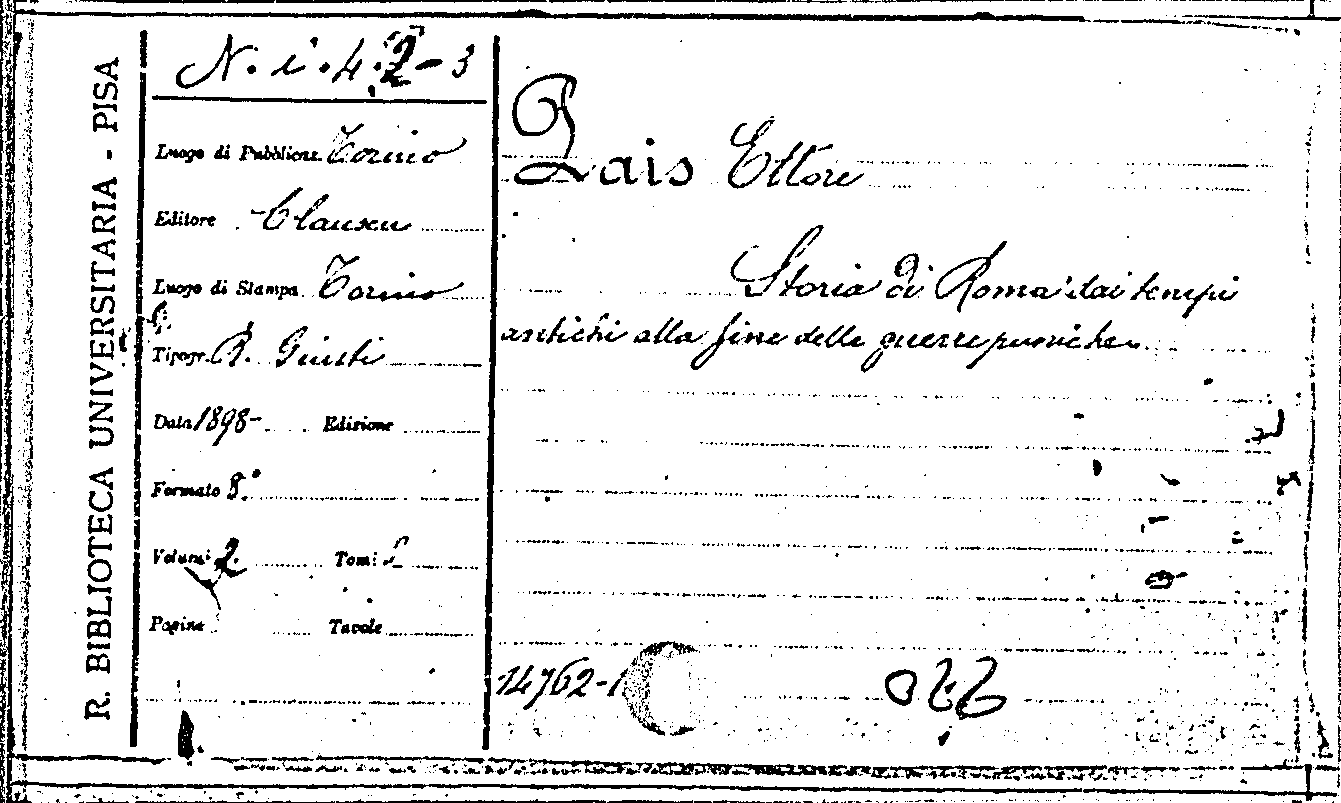 R. BIBLIOTECA UNIVERSITARIA - PISA
N. i. 4. 2-3
Luogo di Pubblicaz. Torino
Editore Clausen
Luogo di Stampa Torino
Tipogr. R. Giusti
Data 1898- Edizione
Formato 8.°
Volumi 2 Tomi
Pagine Tavole
Pais Ettore
Storia di Roma dai tempi
antichi alla fine delle guerre puniche.
14762-